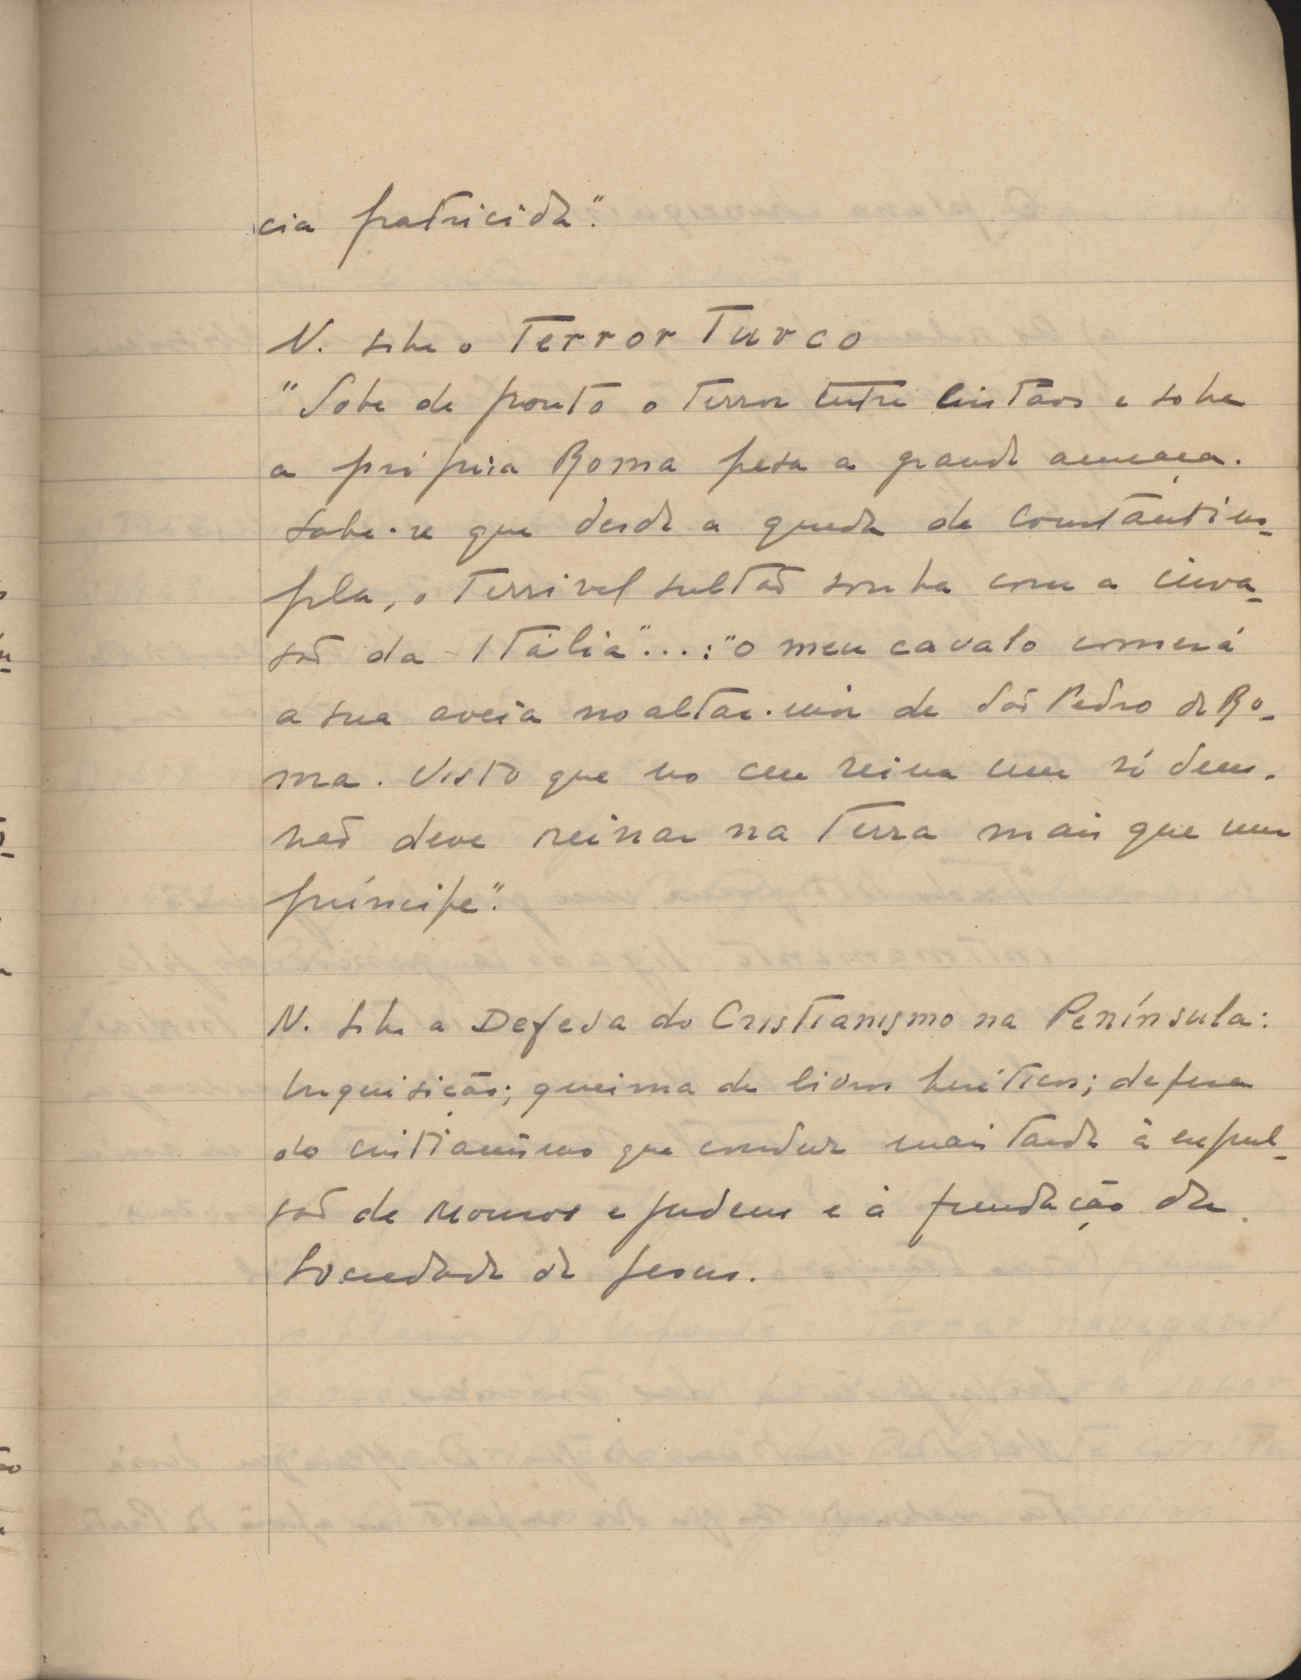 cia fratricida".
N. sobre o Terror Turco
"Sobe de pronto o terror entre cristãos e sobre
a própria Roma pesa a grande ameaça.
Sabe-se que desde a queda de Constantino-
pla, o terrivel sultão sonha com a inva-
são da Itália"...: "o meu cavalo comerá
a sua aveia no altar-mór de São Pedro de Ro-
ma. Visto que no ceu reina um só deus.
não deve reinar na Terra mais que um
príncipe".
N. sobre a Defesa do Cristianismo na Península:
Inquisição; queima de livros heréticos; defesa
do cristianismo que conduz mais tarde à expul-
são de mouros e judeus e à fundação da
Sociedade de Jesus.